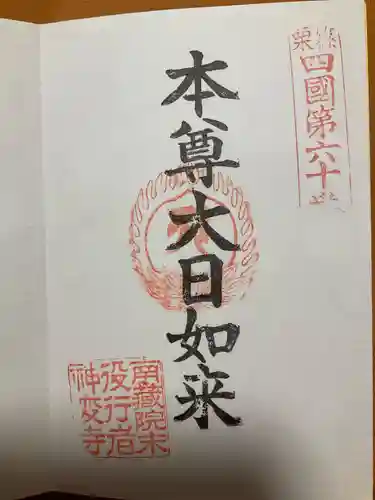 四國第六十
本尊大日如来
南蔵院末
役行者
神変寺